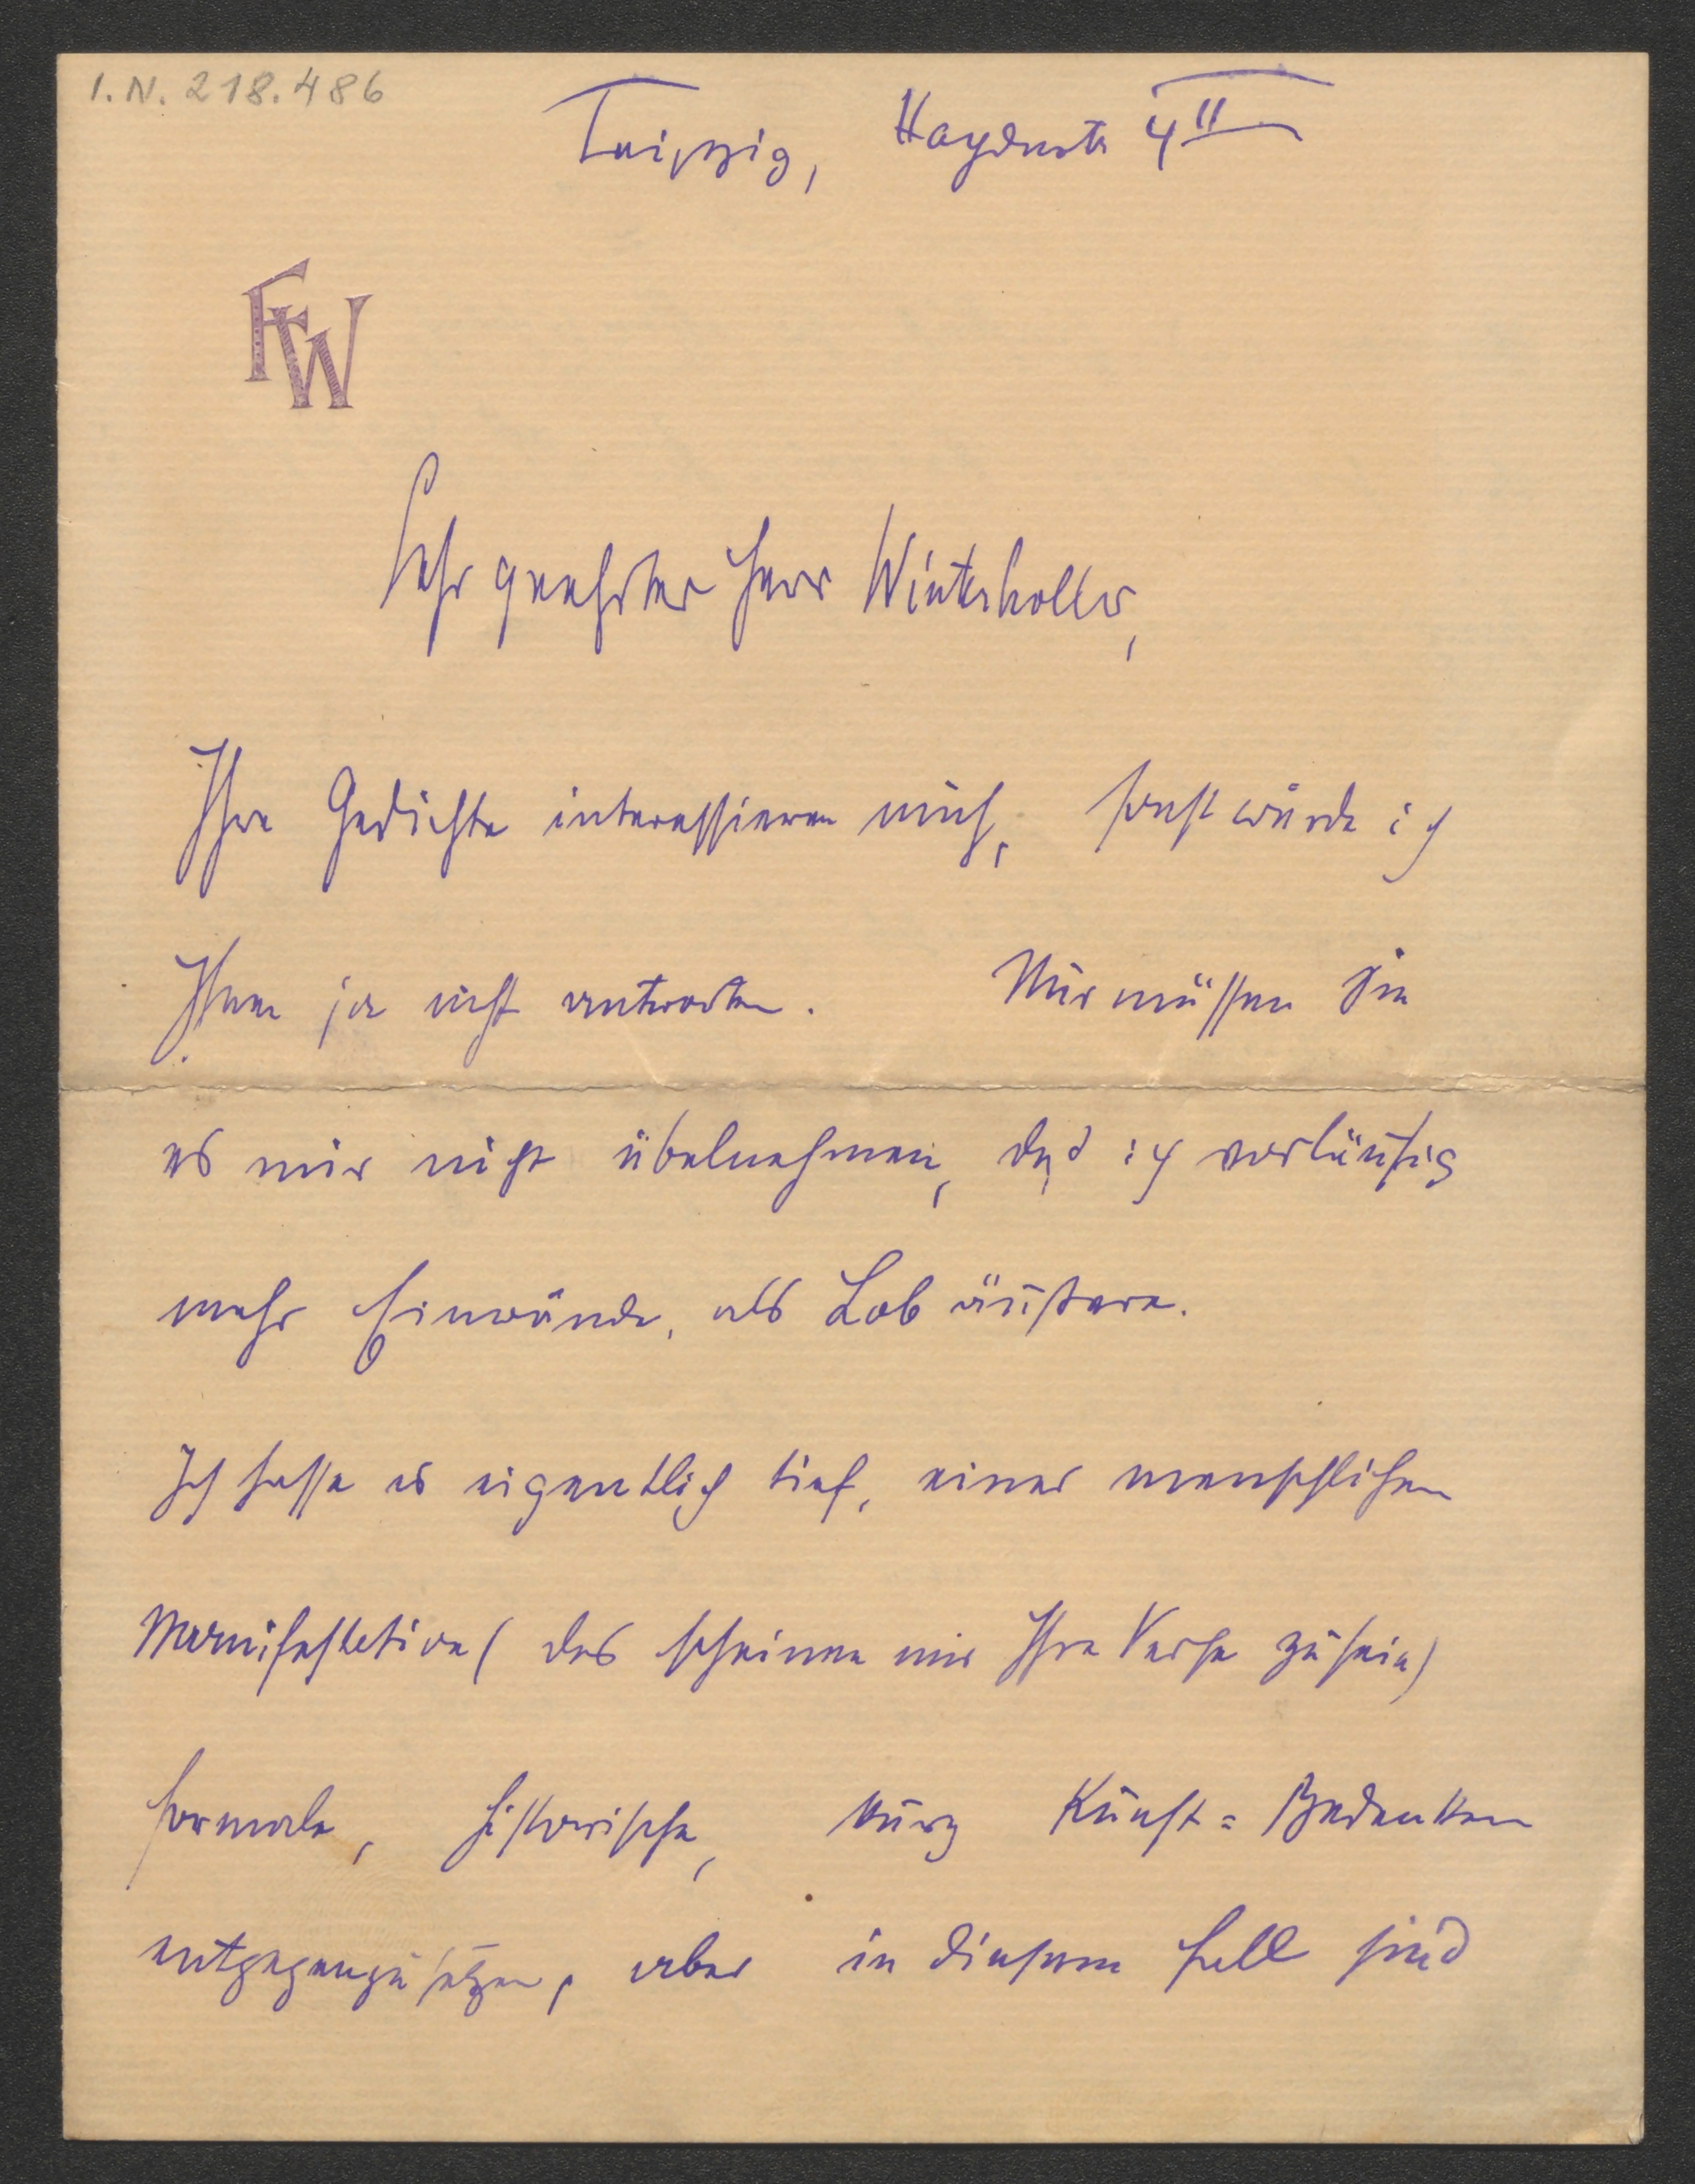 I.N. 218.486
Leipzig, Haydnstr 4 II
FW
Sehr geehrter Herr Winterholler,
Ihre Gedichte interessieren mich, sonst würde ich
Ihnen ja nicht antworten. Nur müssen Sie
es mir nicht übelnehmen, daß ich vorläufig
mehr Einwände, als Lob äußere.
Ich hasse es eigentlich tief, einer menschlichen
Manifestation (das scheinen mir Ihre Verse zu sein)
formale, historische, kurz Kunst=Bedenken
entgegenzusetzen, aber in diesem Fall sind